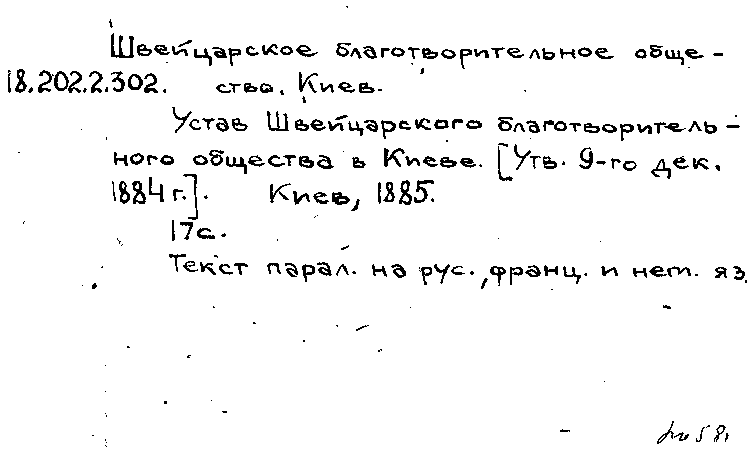 Швейцарское благотворительное обще-
18.202.2.302. ство. Киев.
Устав Швейцарского благотворитель-
ного общества в Киеве. [Утв. 9-го дек.
1884 г.]. Киев, 1885.
17с.
Текст парал. на рус., франц. и нем. яз.